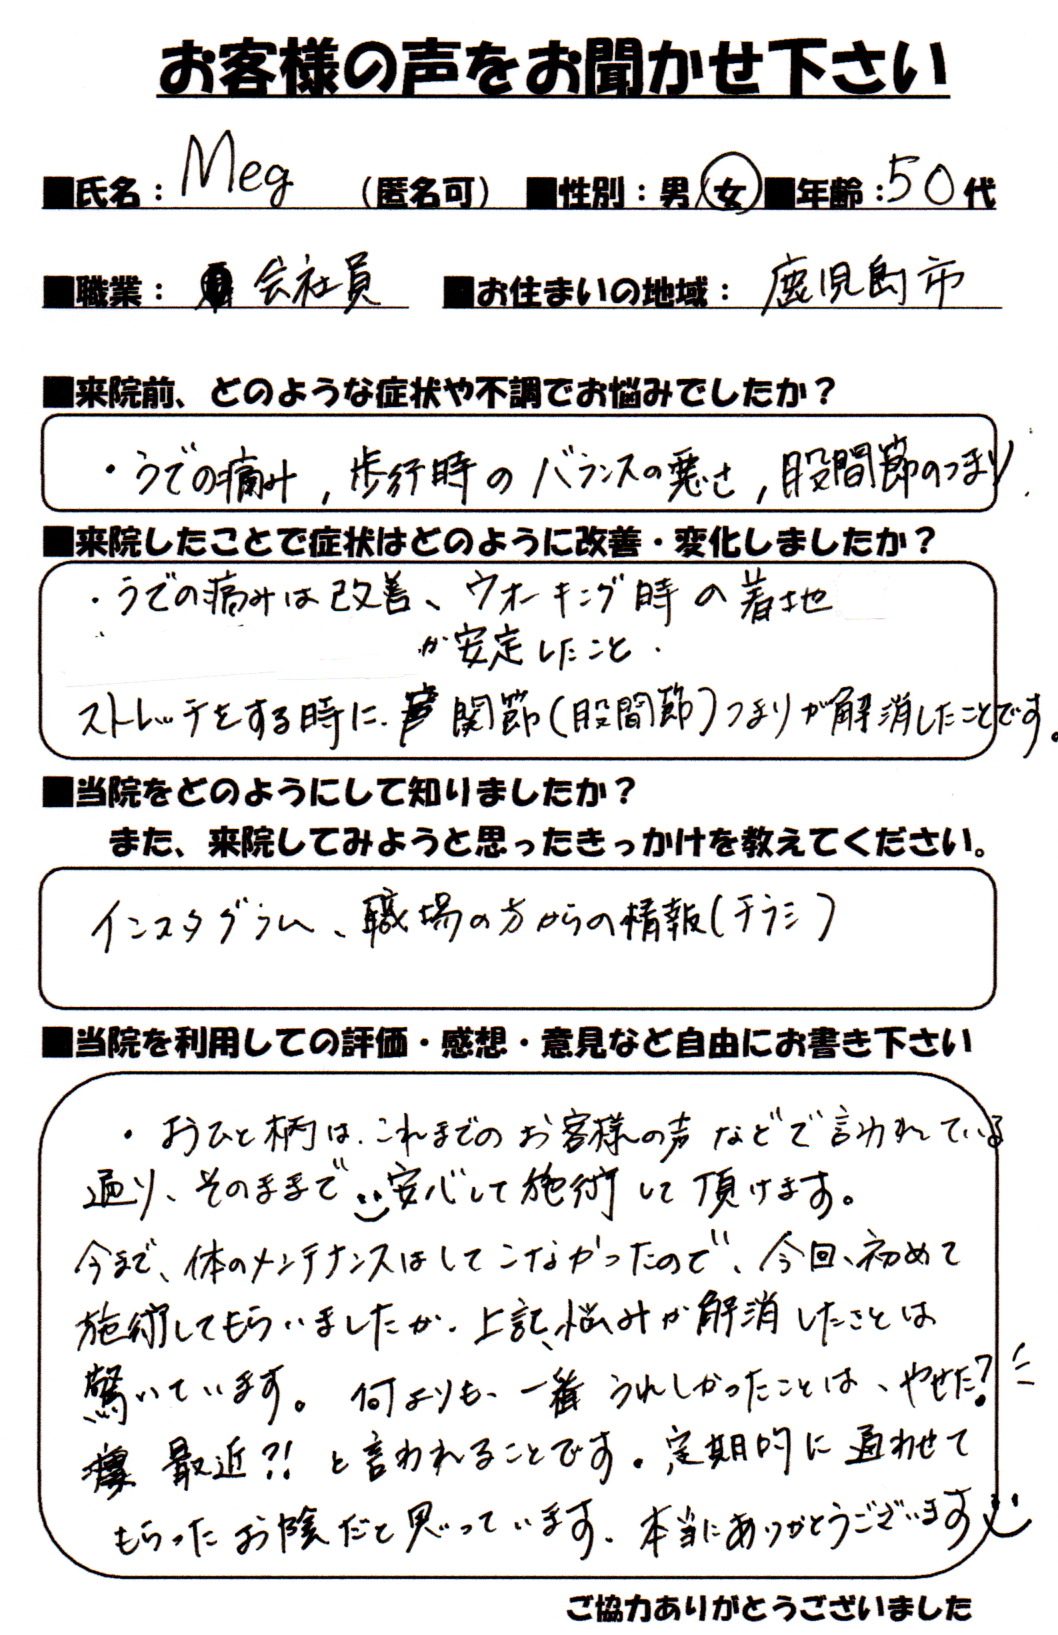 お客様の声をお聞かせ下さい
■氏名：Meg （匿名可） ■性別：男 女 ■年齢：50代
■職業： 会社員 ■お住まいの地域：鹿児島市
■来院前、どのような症状や不調でお悩みでしたか？
・うでの痛み, 歩行時のバランスの悪さ, 股間節のつまり
■来院したことで症状はどのように改善・変化しましたか？
・うでの痛みは改善、ウオーキング時の着地
が安定したこと.
ストレッチをする時に、関節(股間節)つまりが解消したことです。
■当院をどのようにして知りましたか？
また、来院してみようと思ったきっかけを教えてください。
インスタグラム、職場の方からの情報(チラシ)
■当院を利用しての評価・感想・意見など自由にお書き下さい
・おひと柄は、これまでのお客様の声などで言われている
通り、そのままで 安心して施術して頂けます。
今まで、体のメンテナンスはしてこなかったので、今回、初めて
施術してもらいましたが、上記、悩みが解消したことは
驚いています。何よりも、一番うれしかったことは、やせた?
最近?!と言われることです。定期的に通わせて
もらったお陰だと思っています。本当にありがとうございます
ご協力ありがとうございました